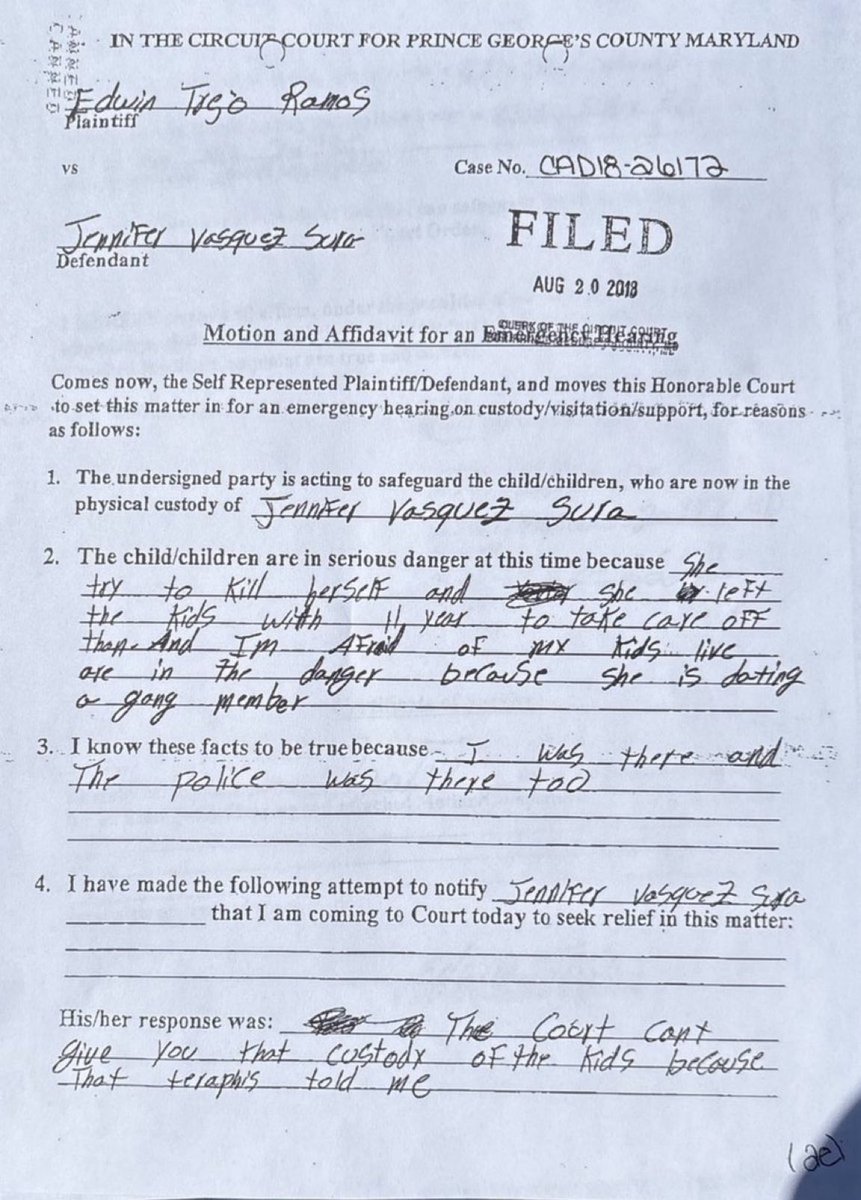 IN THE CIRCUIT COURT FOR PRINCE GEORGE'S COUNTY MARYLAND
Edwin Trejo Ramos
Plaintiff
vs
Case No. CAD18-26172
Jennifer Vasquez Sura
Defendant
FILED
AUG 20 2018
CLERK OF THE CIRCUIT COURT
Motion and Affidavit for an Emergency Hearing
Comes now, the Self Represented Plaintiff/Defendant, and moves this Honorable Court
to set this matter in for an emergency hearing on custody/visitation/support, for reasons
as follows:
1. The undersigned party is acting to safeguard the child/children, who are now in the
physical custody of Jennifer Vasquez Sura
2. The child/children are in serious danger at this time because She
try to kill herself and she left
the kids with 11, year to take care off
than. And I'm Afraid of my kids live
are in the danger because she is dating
a gang member
3. I know these facts to be true because I was there and
The police was there too
4. I have made the following attempt to notify Jennifer Vasquez Sura
that I am coming to Court today to seek relief in this matter:
His/her response was: The Court cant
give you that custody of the kids because
That teraphis told me
(ae)